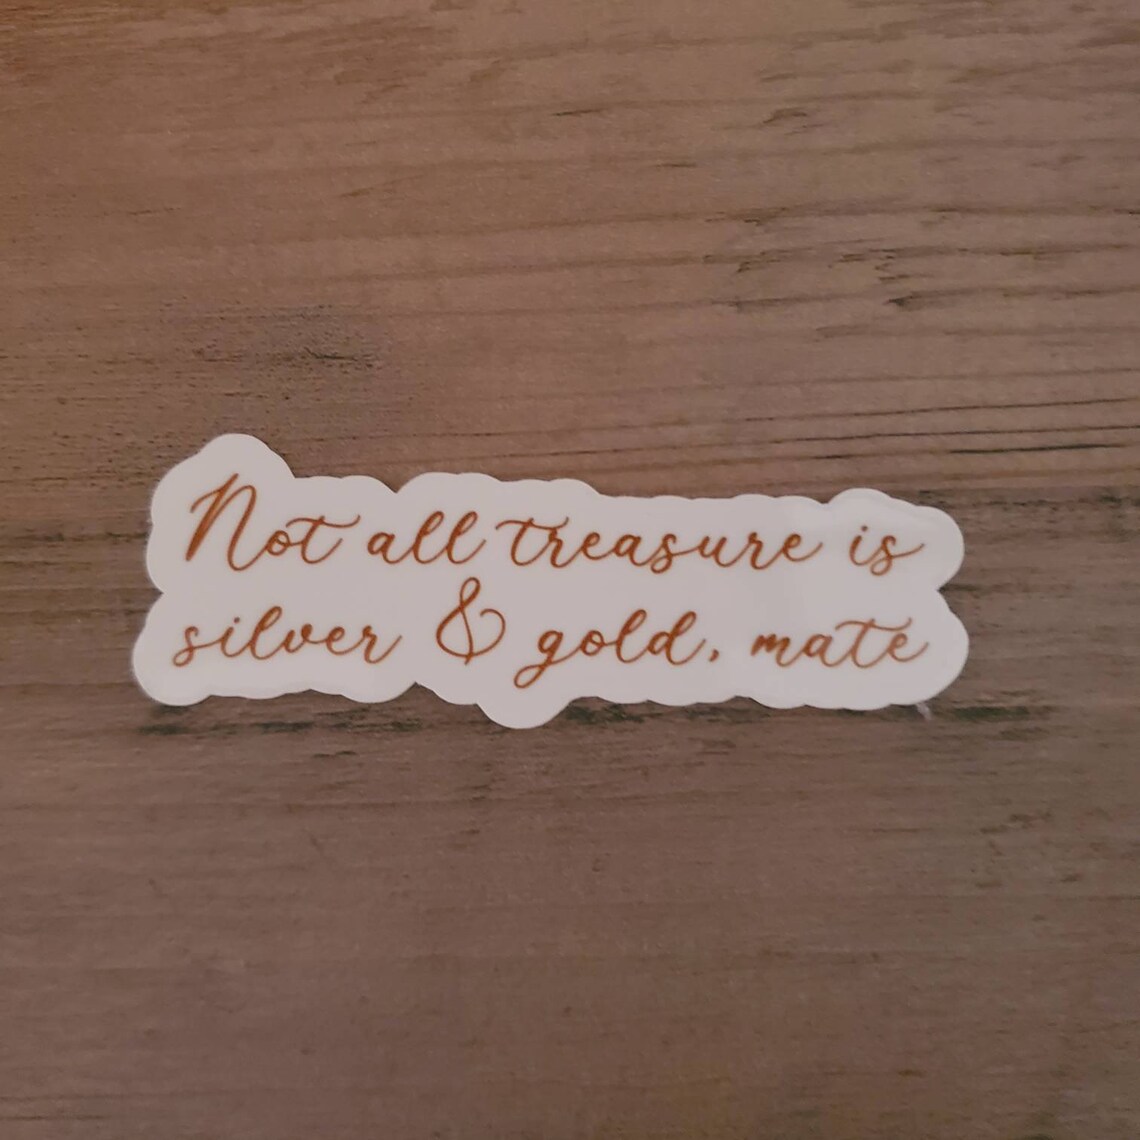 Not all treasure is
silver & gold, mate